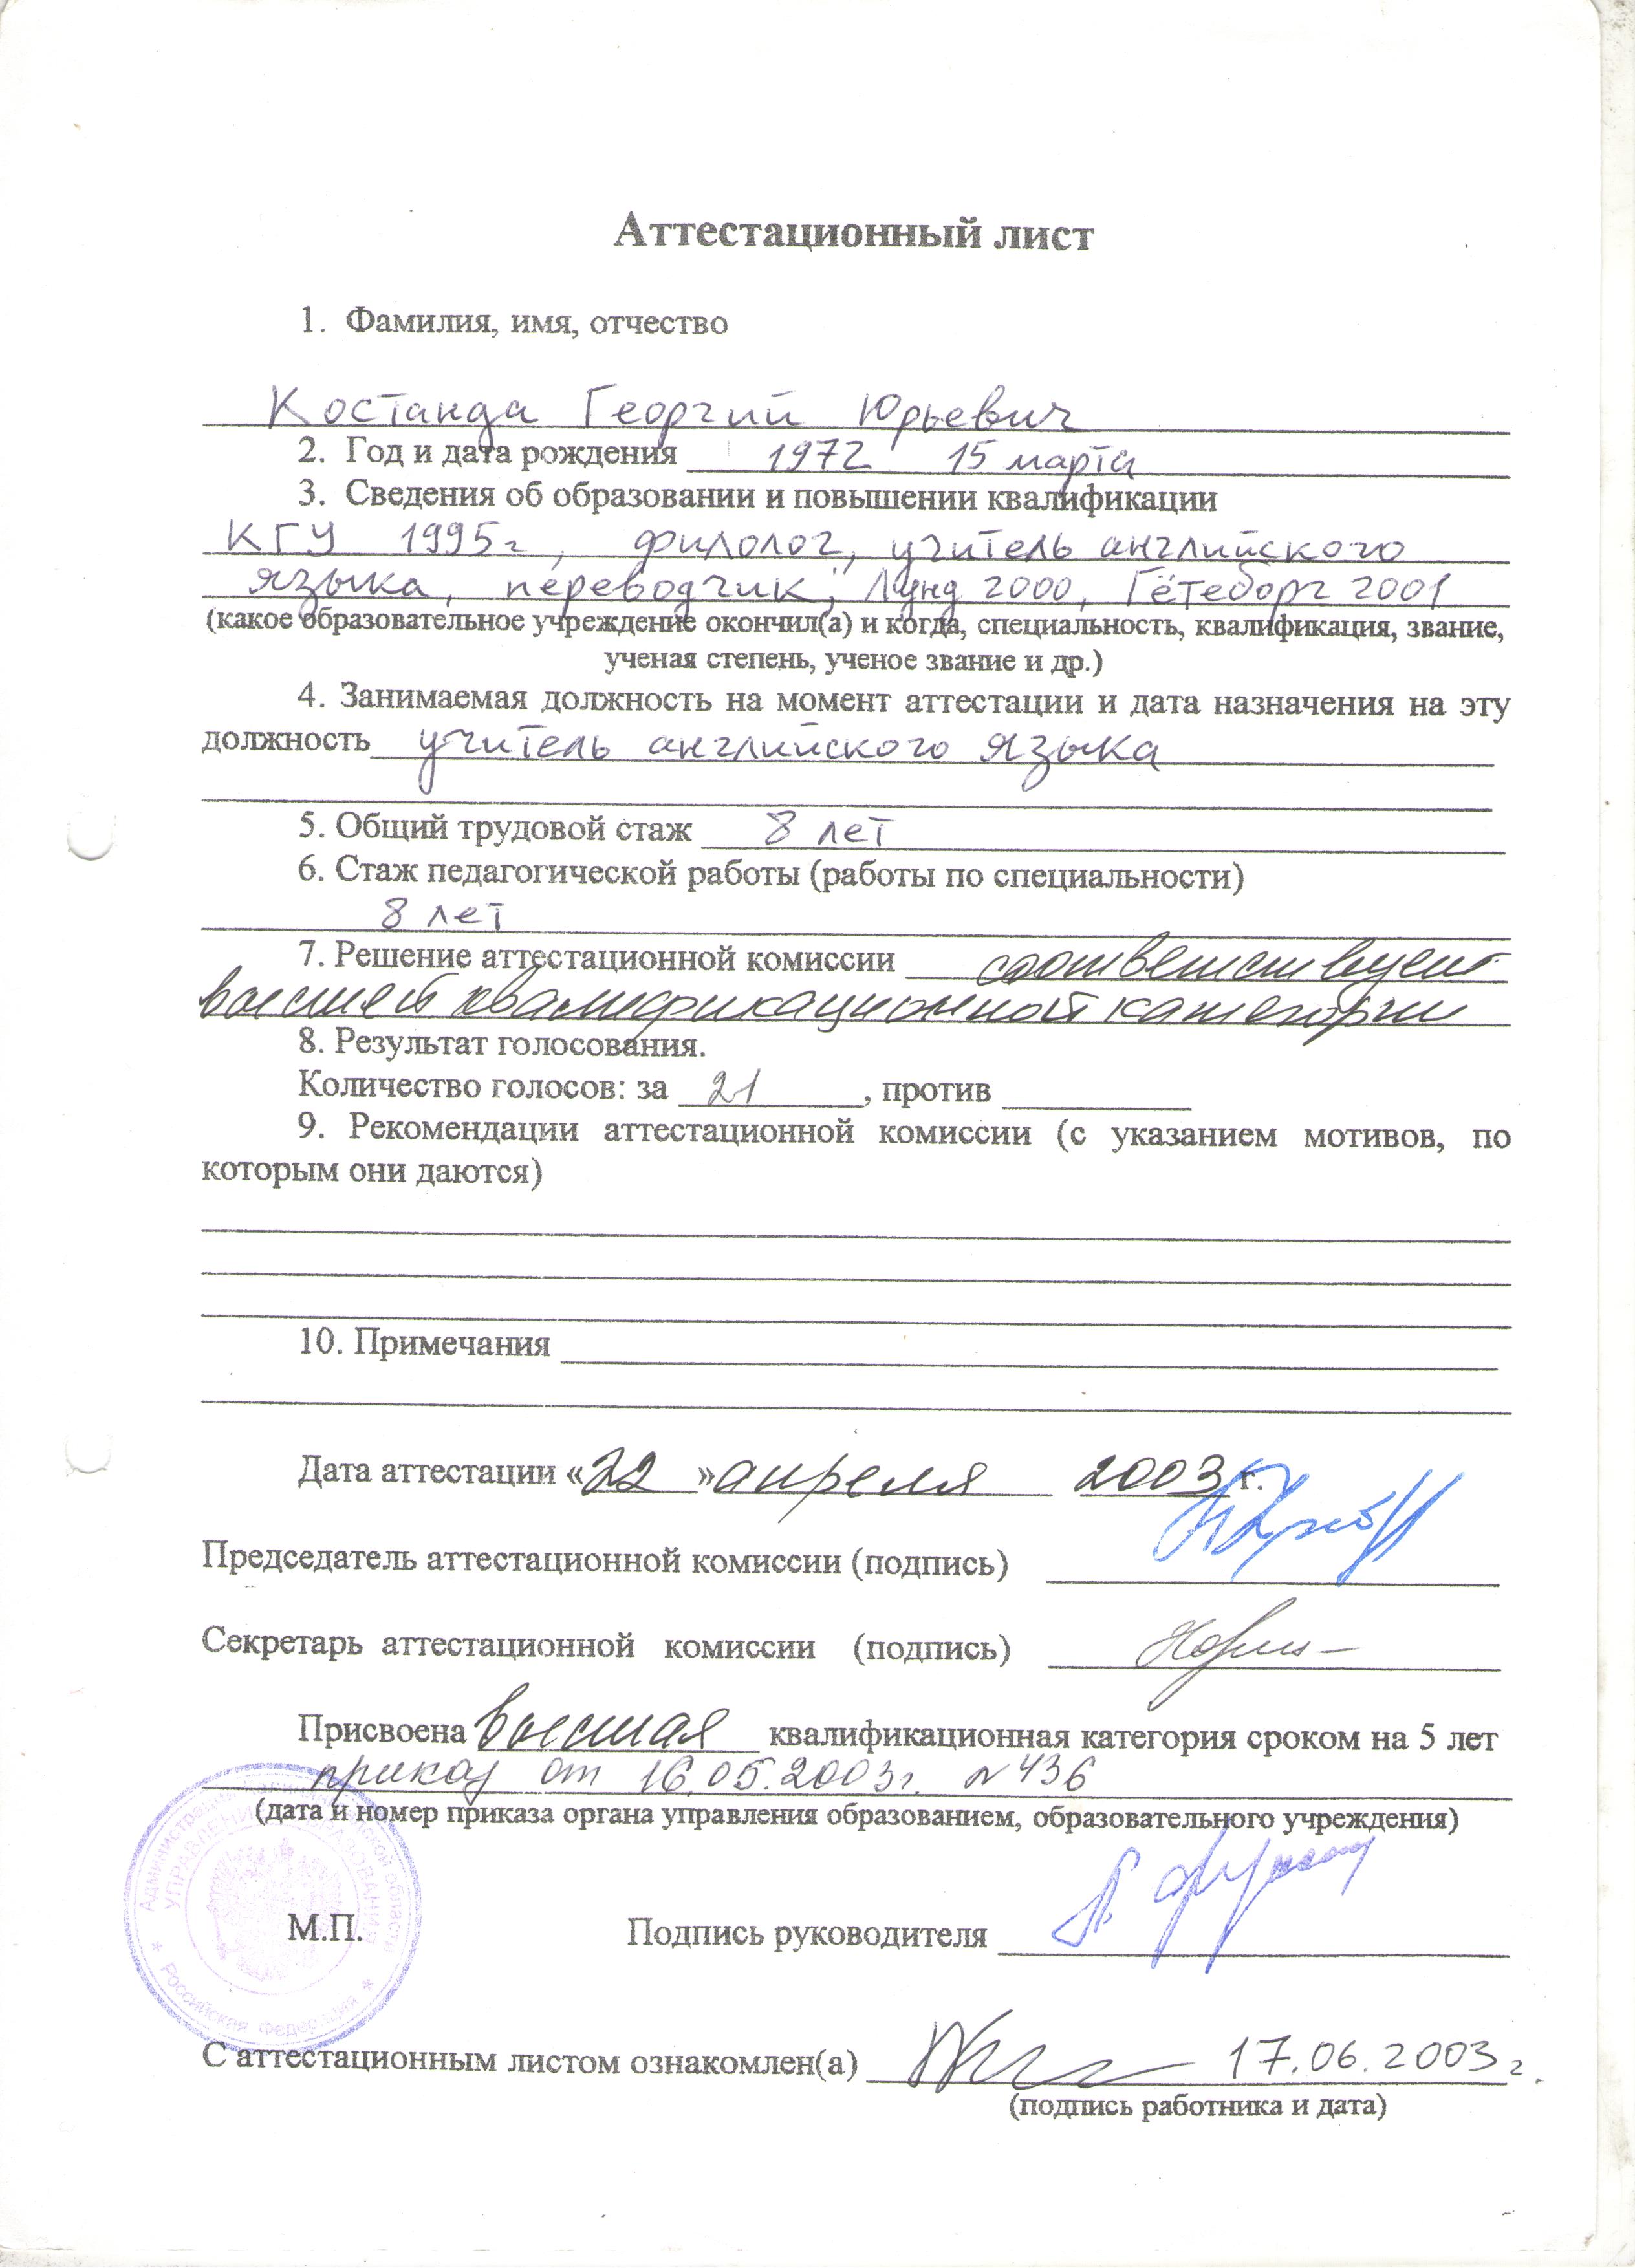 Аттестационный лист
1. Фамилия, имя, отчество
Костанда Георгий Юрьевич
2. Год и дата рождения 1972 15 марта
3. Сведения об образовании и повышении квалификации
КГУ 1995г, филолог, учитель английского
языка, переводчик; Лунд 2000, Гётеборг 2001
(какое образовательное учреждение окончил(а) и когда, специальность, квалификация, звание,
ученая степень, ученое звание и др.)
4. Занимаемая должность на момент аттестации и дата назначения на эту
должность учитель английского языка
5. Общий трудовой стаж 8 лет
6. Стаж педагогической работы (работы по специальности)
8 лет
7. Решение аттестационной комиссии соответствует
высшей квалификационной категории
8. Результат голосования.
Количество голосов: за 21, против
9. Рекомендации аттестационной комиссии (с указанием мотивов, по
которым они даются)
10. Примечания
Дата аттестации «22» апреля 2003 г.
Председатель аттестационной комиссии (подпись)
Секретарь аттестационной комиссии (подпись)
Присвоена высшая квалификационная категория сроком на 5 лет
приказ от 16.05.2003г. N 436
(дата и номер приказа органа управления образованием, образовательного учреждения)
Администрация Калининградской области
УПРАВЛЕНИЕ ОБРАЗОВАНИЯ
* Российская Федерация *
М.П. Подпись руководителя
С аттестационным листом ознакомлен(а) 17.06.2003г.
(подпись работника и дата)